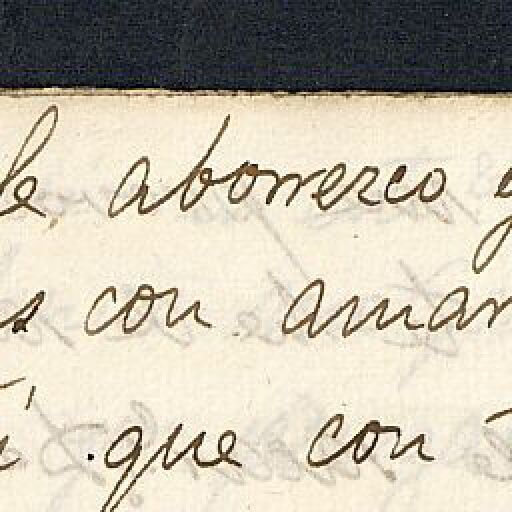 le, aborrezco
s con amar
que con